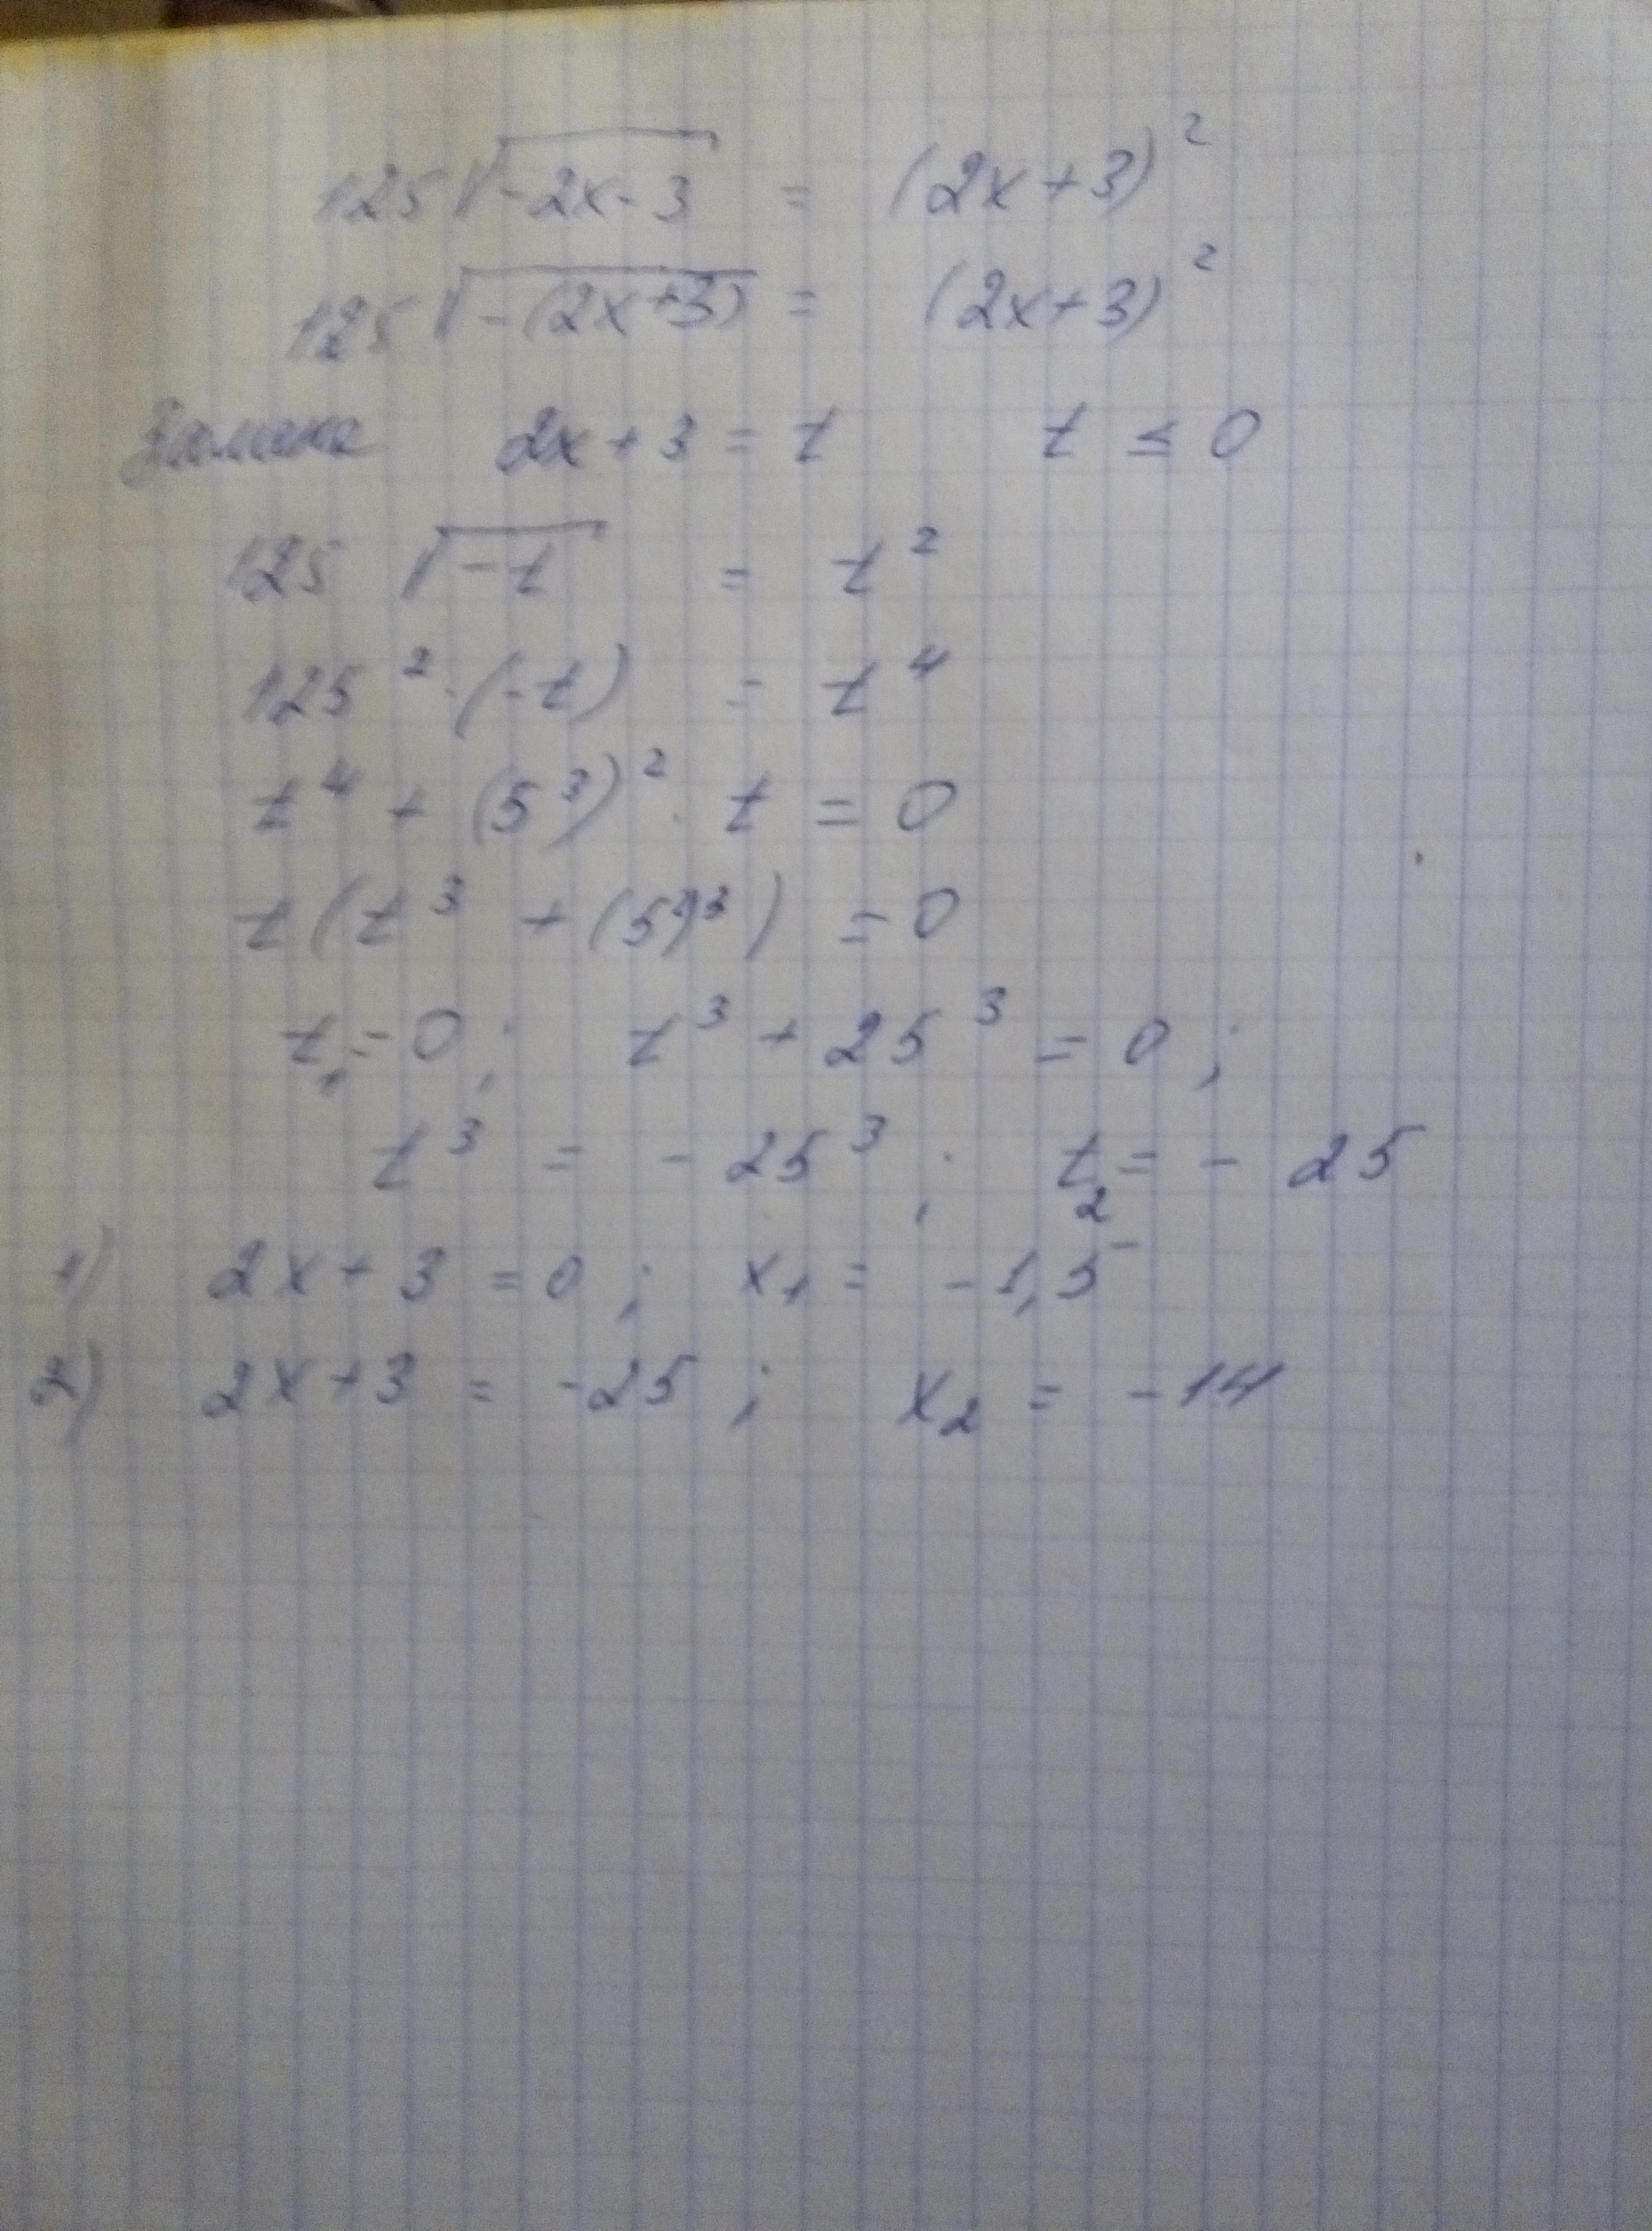 125√(-2x-3) = (2x+3)²
125√(-(2x+3)) = (2x+3)²
Замена 2x+3=t t ≤ 0
125 √(-t) = t²
125²·(-t) = t⁴
t⁴ + (5³)²·t = 0
t(t³ + (5²)³) = 0
t₁=0; t³+25³=0;
t³ = -25³; t₂ = -25
1) 2x+3=0; x₁ = -1,5
2) 2x+3 = -25; x₂ = -14